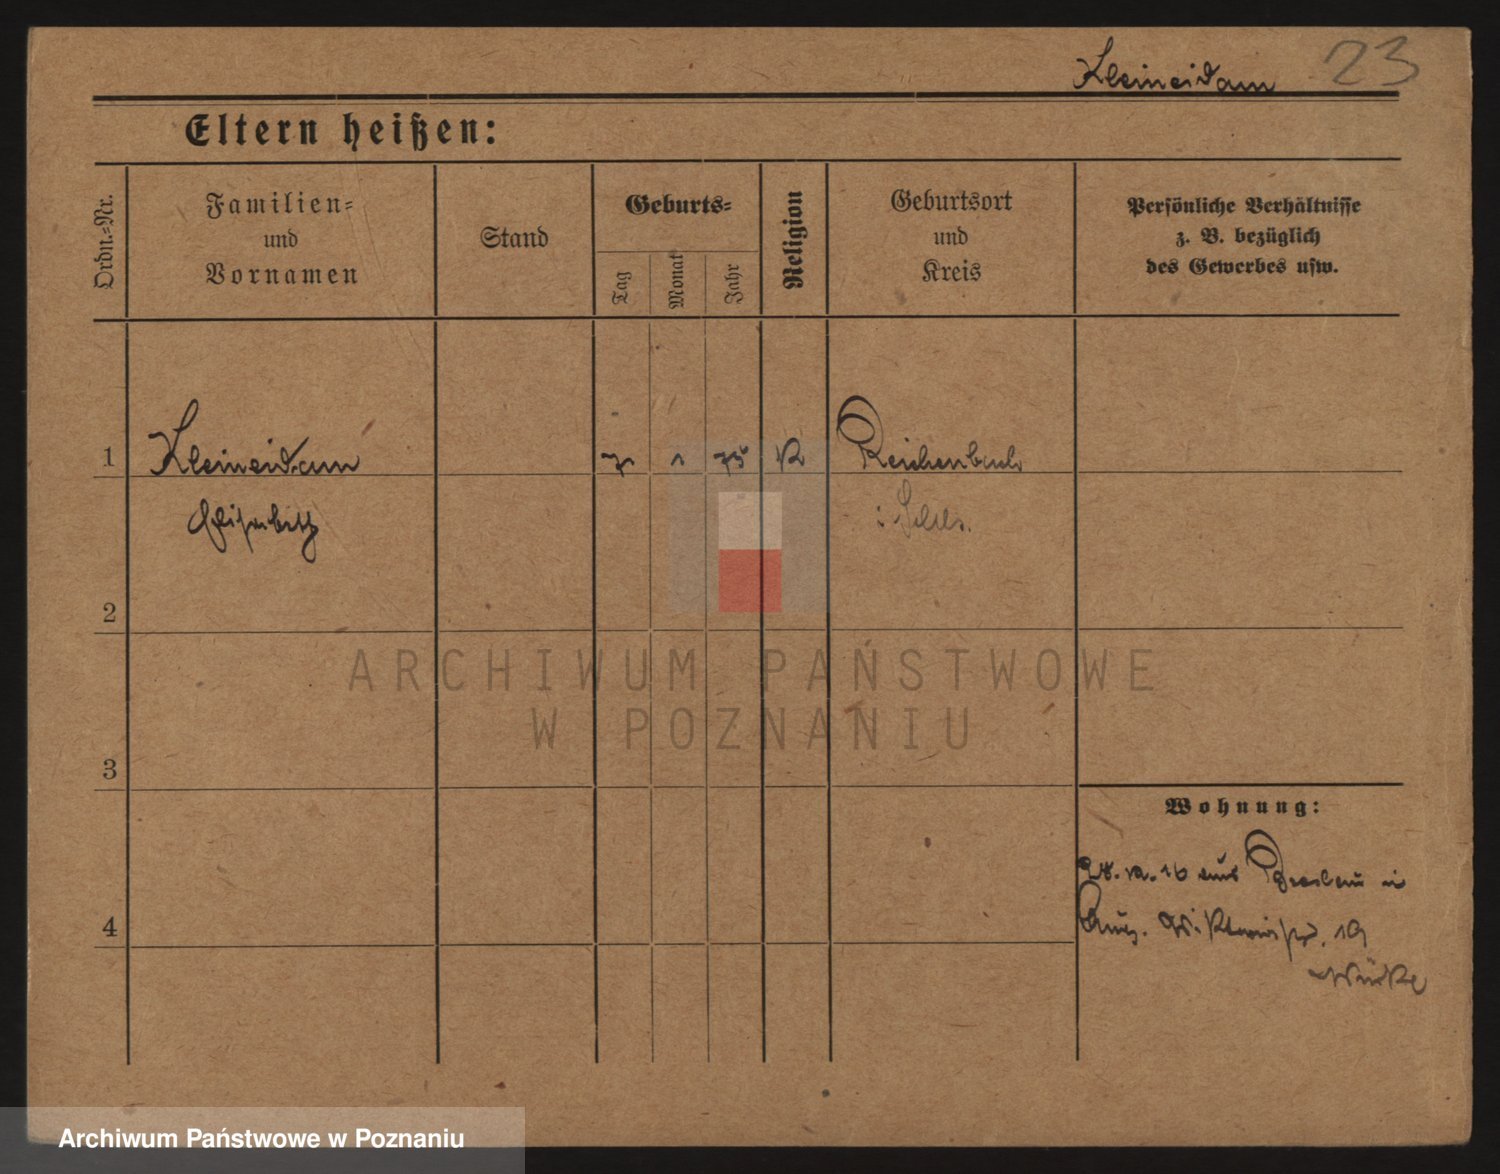 Kleineidam 23
Eltern heißen:
Ordn.-Nr.
Familien-
und
Vornamen
Stand
Geburts-
Tag
Monat
Jahr
Religion
Geburtsort
und
Kreis
Persönliche Verhältnisse
z. B. bezüglich
des Gewerbes usw.
1 Kleineidam 7 1 75 K Reichenbach
Elisabeth i Schles.
2
ARCHIWUM PAŃSTWOWE
W POZNANIU
3
Wohnung:
aus Breslau in
4
19
Archiwum Państwowe w Poznaniu